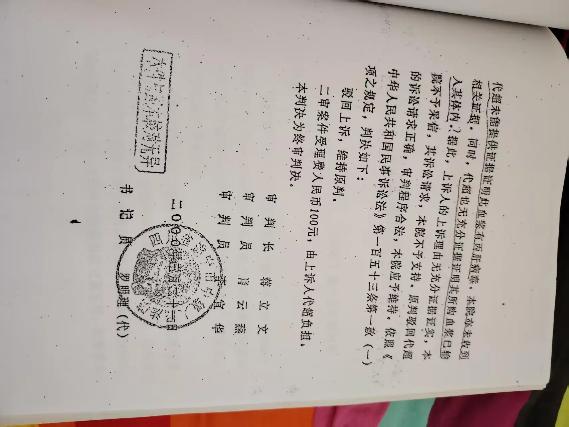 代超未能提供证据证明此血浆有丙肝病毒，本院亦未收到
相关证据。同时，代超也无充分证据证明其所购血浆已输
入其体内。据此，上诉人的上诉理由无充分证据证实，本
院不予采信，其诉讼请求，本院不予支持。原判驳回代超
的诉讼请求正确，审判程序合法，本院应予维持。依照《
中华人民共和国民事诉讼法》第一百五十三条第一款（一）
项之规定，判决如下：
驳回上诉，维持原判。
二审案件受理费人民币100元，由上诉人代超负担。
本判决为终审判决。
审判长 蒋立文
审判员 云
审判员 华
二000年
书记员 明理（代）
本件与原本核对无异